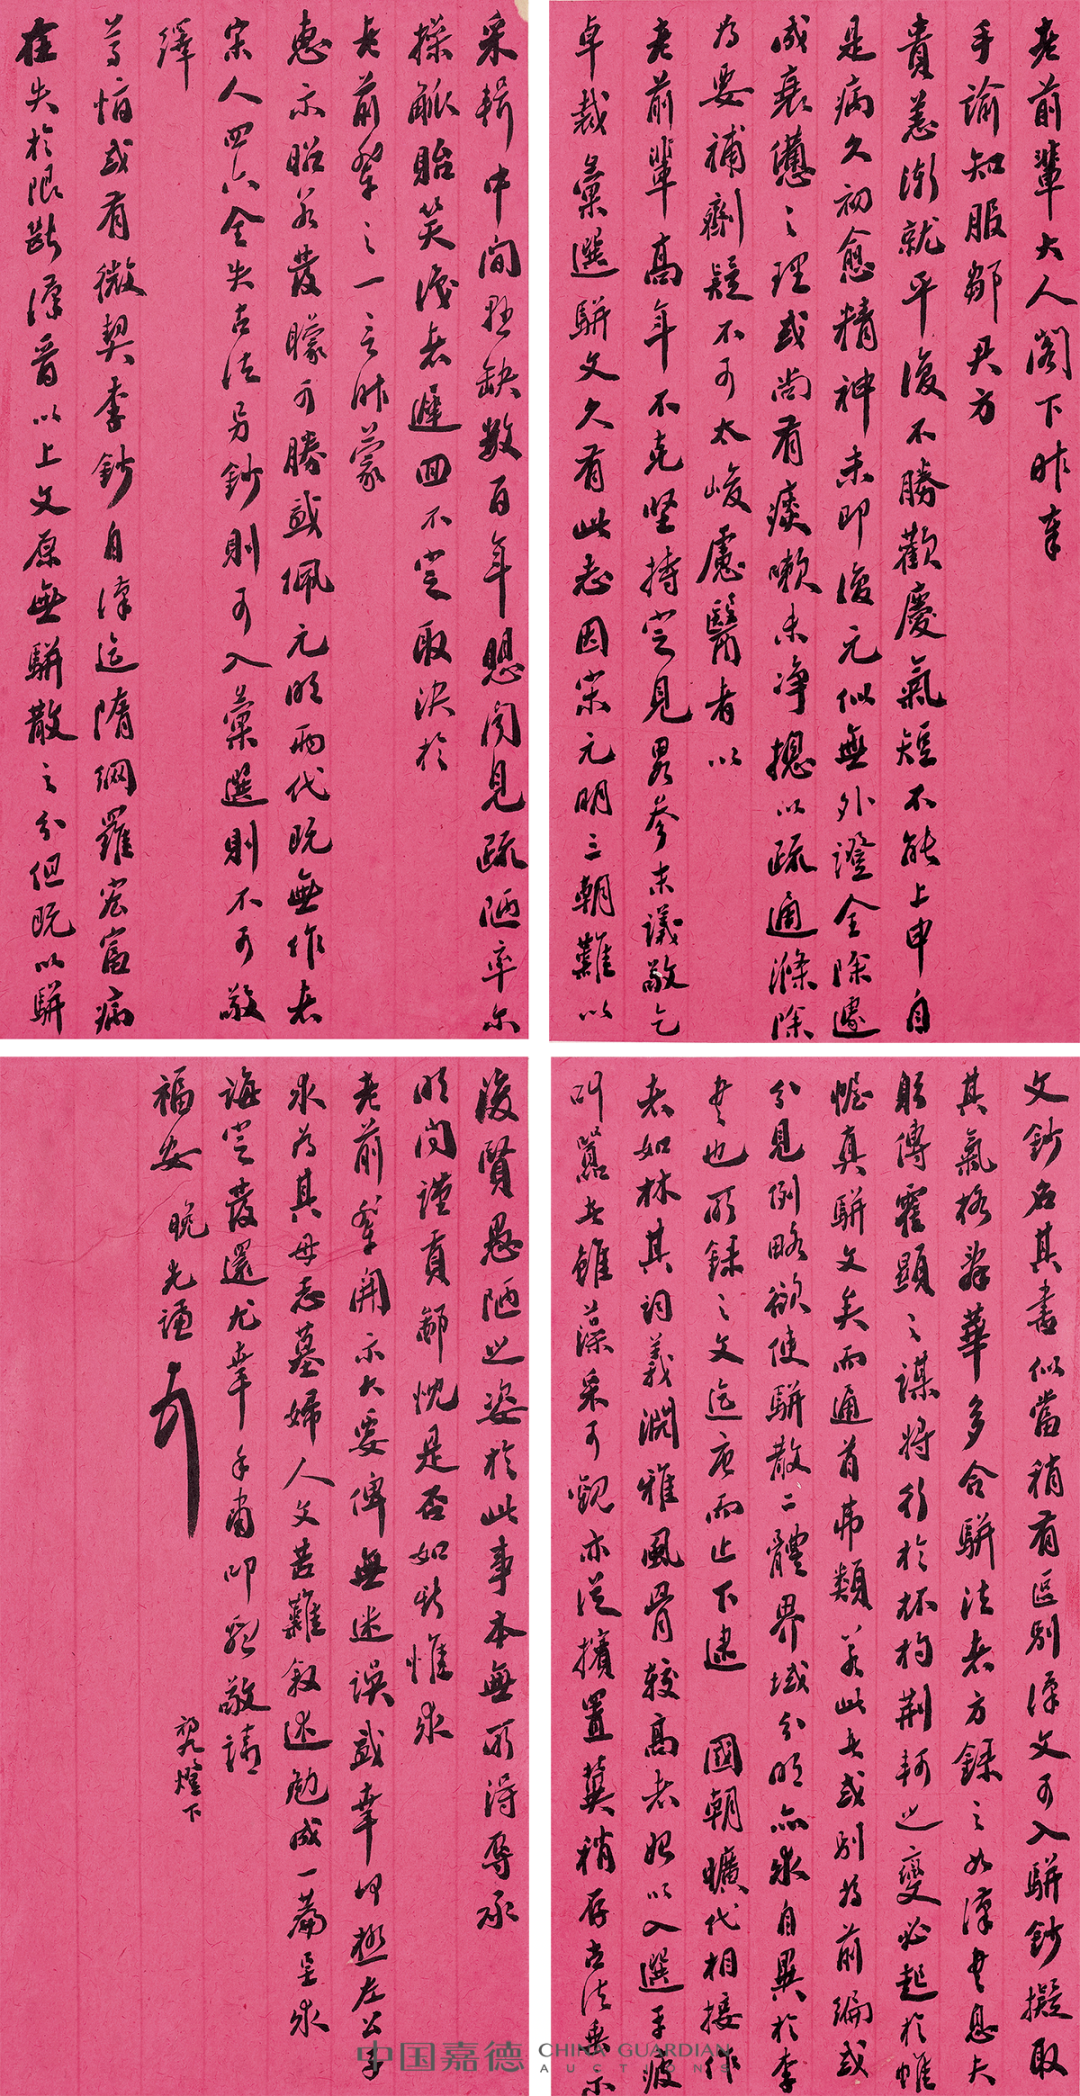 老前輩大人閣下昨奉
手諭知服鄒君方
貴恙漸就平復不勝歡慶氣短不能上申自
是病久初愈精神未即復元似無外證全除遽
成衰憊之理或尚有痰嗽未淨擬以疏通滌除
為要補劑疑不可太峻慮醫者以
老前輩高年不克堅持定見畧參末議敬乞
卓裁彙選駢文久有此志因宋元明三朝難以
采輯中間懸缺數百年聞見疏陋率爾
操觚貽笑後者遲回不定取決於
老前輩之一言昨蒙
惠示昭若發矇可勝感佩元明兩代既無作者
宋人四六全失古法另鈔則可入彙選則不可敬
繹
尊恉或有微契李鈔自漢迄隋網羅宏富病
在失於限斷漢晉以上文原無駢散之分但既以駢
文鈔名其書似當稍有區別漢文可入駢鈔擬取
其氣格 華多合駢法者方錄之如漢書息夫
躬傳霍顯之謀將行於杯杓荊軻之變必起於帷
幄真駢文矣而通首弗類若此者或別為前編或
分見例略欲使駢散二體界域分明亦求自異於李
書也所錄之文迄唐而止下逮 國朝曠代相接作
者如林其詞義淵雅風骨較高者始以入選手疲
叫囂者雖藻采可觀亦從擯置冀稍存古法垂示
後賢愚陋之姿於此事本無所得辱承
明問謹貢鄙忱是否如斯惟求
老前輩開示大要俾無迷誤感幸 極左公子
求為其母志墓婦人文苦難敘述勉成一篇呈求
誨定發還尤幸手肅叩 敬請
福安 晚先謙
初九燈下
中国嘉德 CHINA GUARDIAN
AUCTIONS